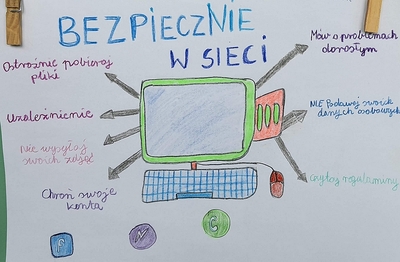 BEZPIECZNIE
W SIECI
Ostrożnie pobieraj
pliki
Uzależnienie
Nie wysyłaj
swoich zdjęć
Chroń swoje
konta
Mów o problemach
dorosłym
NIE Podawaj swoich
danych osobowych
Czytaj regulaminy